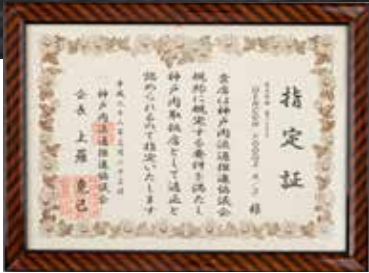 指定証
BEACON FOODS 様
貴店は神戸肉流通推進協議会
規約に規定する要件を満たし
神戸肉取扱店として適正と
認められるので指定いたします
神戸肉流通推進協議会
会長